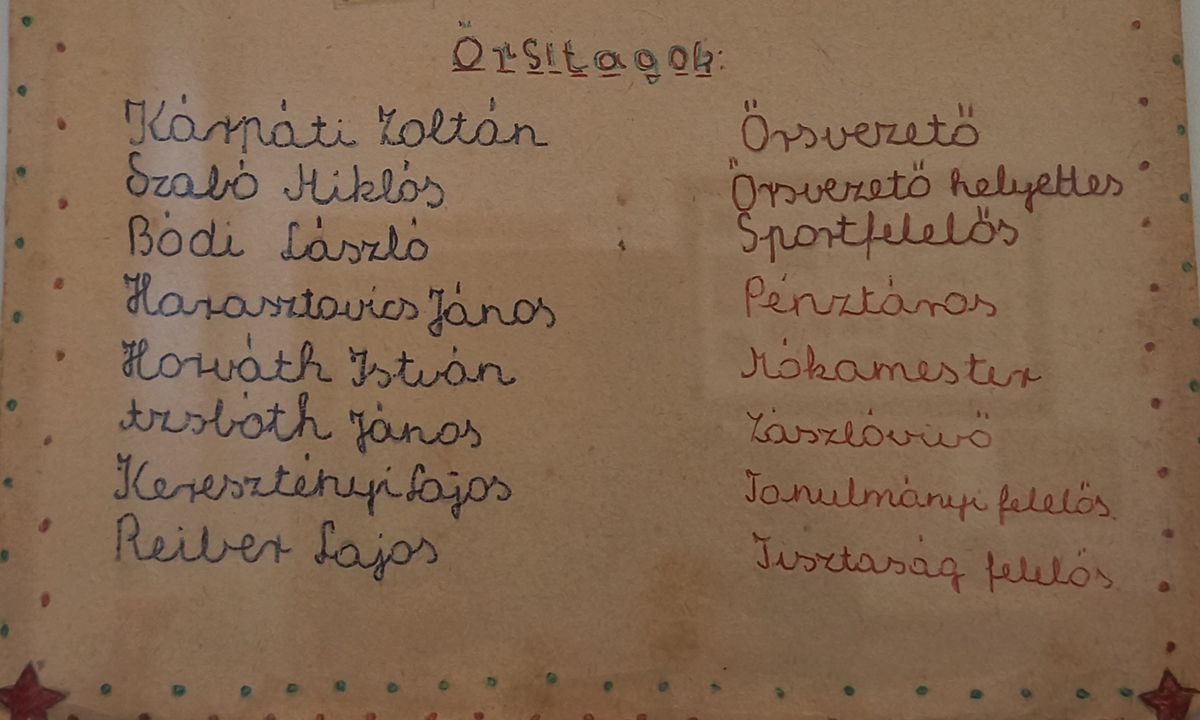 Őrsitagok:
Kárpáti Zoltán Őrsvezető
Szabó Miklós Őrsvezető helyettes
Bódi László Sportfelelős
Harasztovics János Pénztáros
Horváth István Mókamester
Irsbóth János Zászlóvivő
Keresztényi Lajos Tanulmányi felelős.
Reiber Lajos Tisztaság felelős.